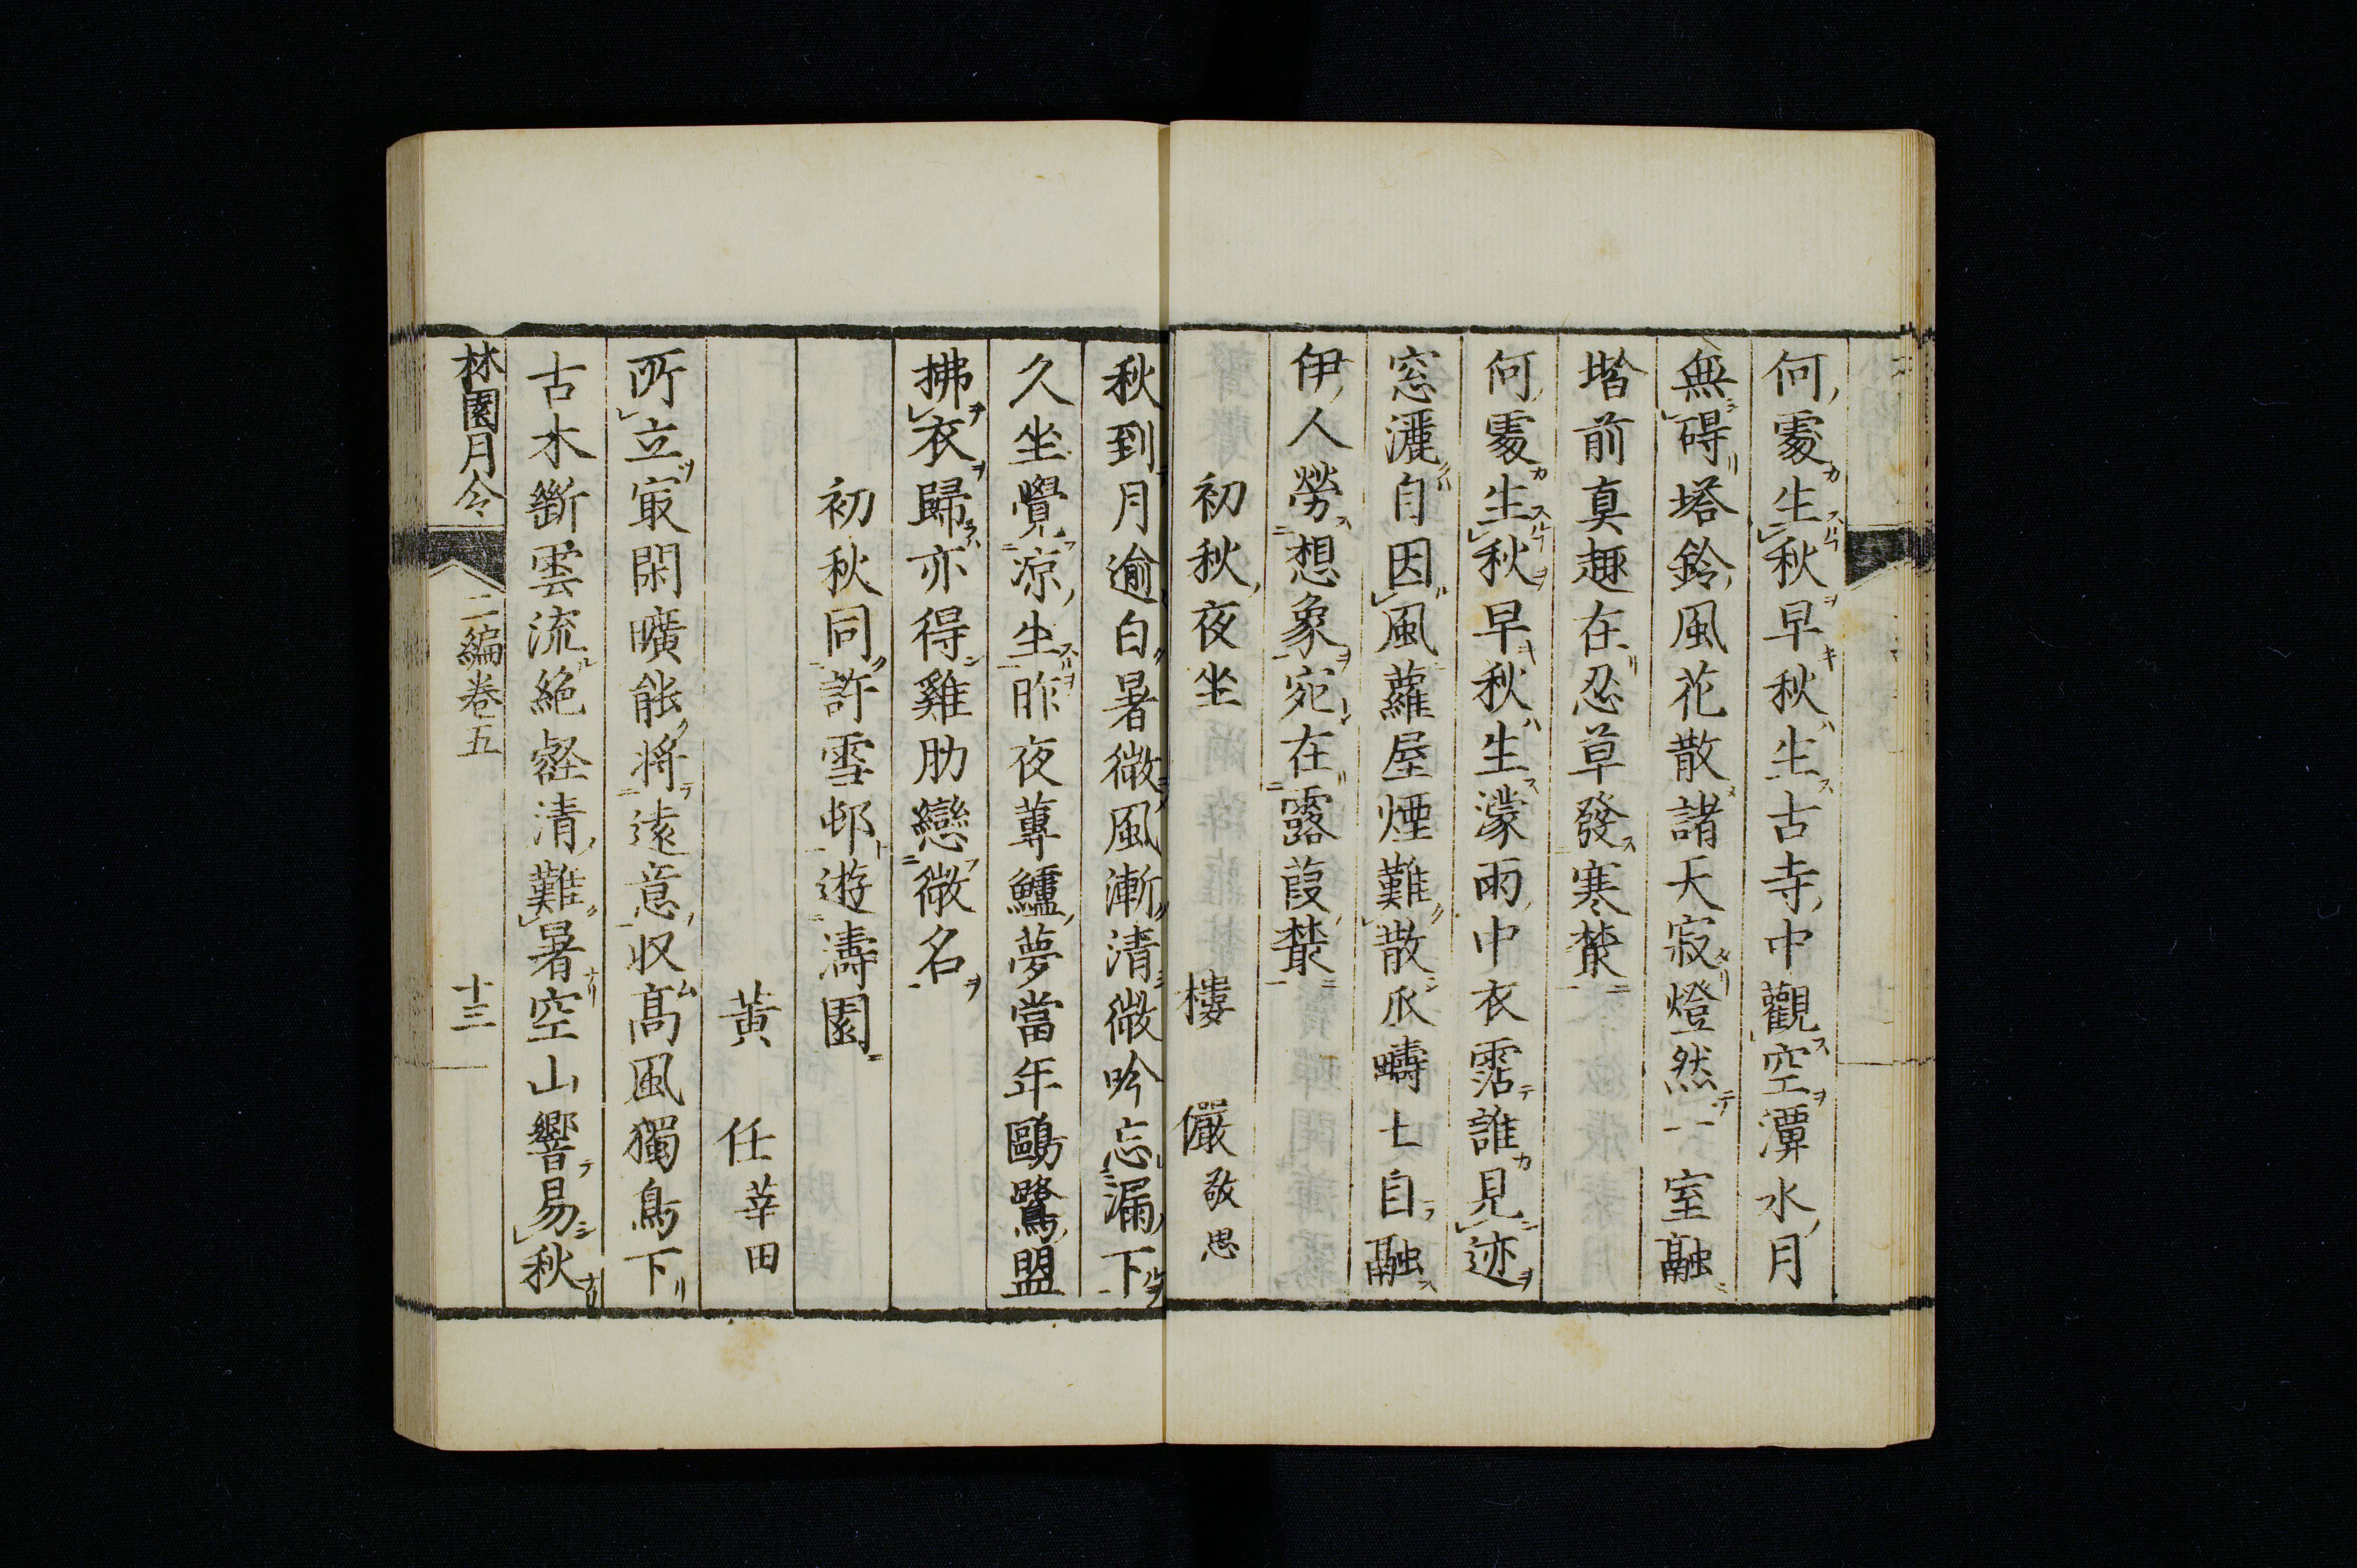 何處生秋早秋生古寺中觀空潭水月
無碍塔鈴風花散諸天寂燈然一室融
堦前真趣在忍草發寒藂
何處生秋早秋生濛雨中衣霑誰見迹
窓灑自因風蘿屋煙難散𠂢疇土自融
伊人勞想象宛在露葭藂
初秋夜坐
樓儼敬思
秋到月逾白暑微風漸清微吟忘漏下
久坐覺涼生昨夜蓴鱸夢當年鷗鷺盟
拂衣歸亦得雞肋戀微名
初秋同許雪邨遊濤園
黃任莘田
所立㝡閑曠能将遠意収高風獨鳥下
古木斷雲流絶壑清難暑空山響易秋
林園月令
二編卷五
十三